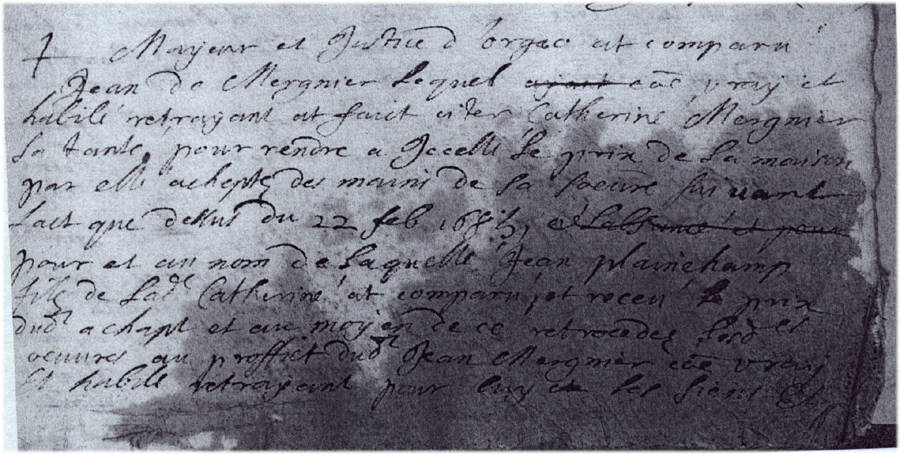 Mayeur et Justice d'orgeo at comparu
Jean de Mergnier lequel ajant coẽ vray et
habile retrayant at fait citer Catherine Mergnier
sa tante, pour rendre a Jcelle le prix de la maison
par elle achepté des mains de sa soeure suivant
lact que dessus du 22 feb
pour et au nom de laquelle Jean plainchamp
fils de lad.e Catherine at comparu, et receu le prix
dud.t achapt et au moyen de ce retrocedez lesd.es
oeuvres au proffict dud.t Jean Mergnier coẽ vray
et habile retrayant pour luy et les siens